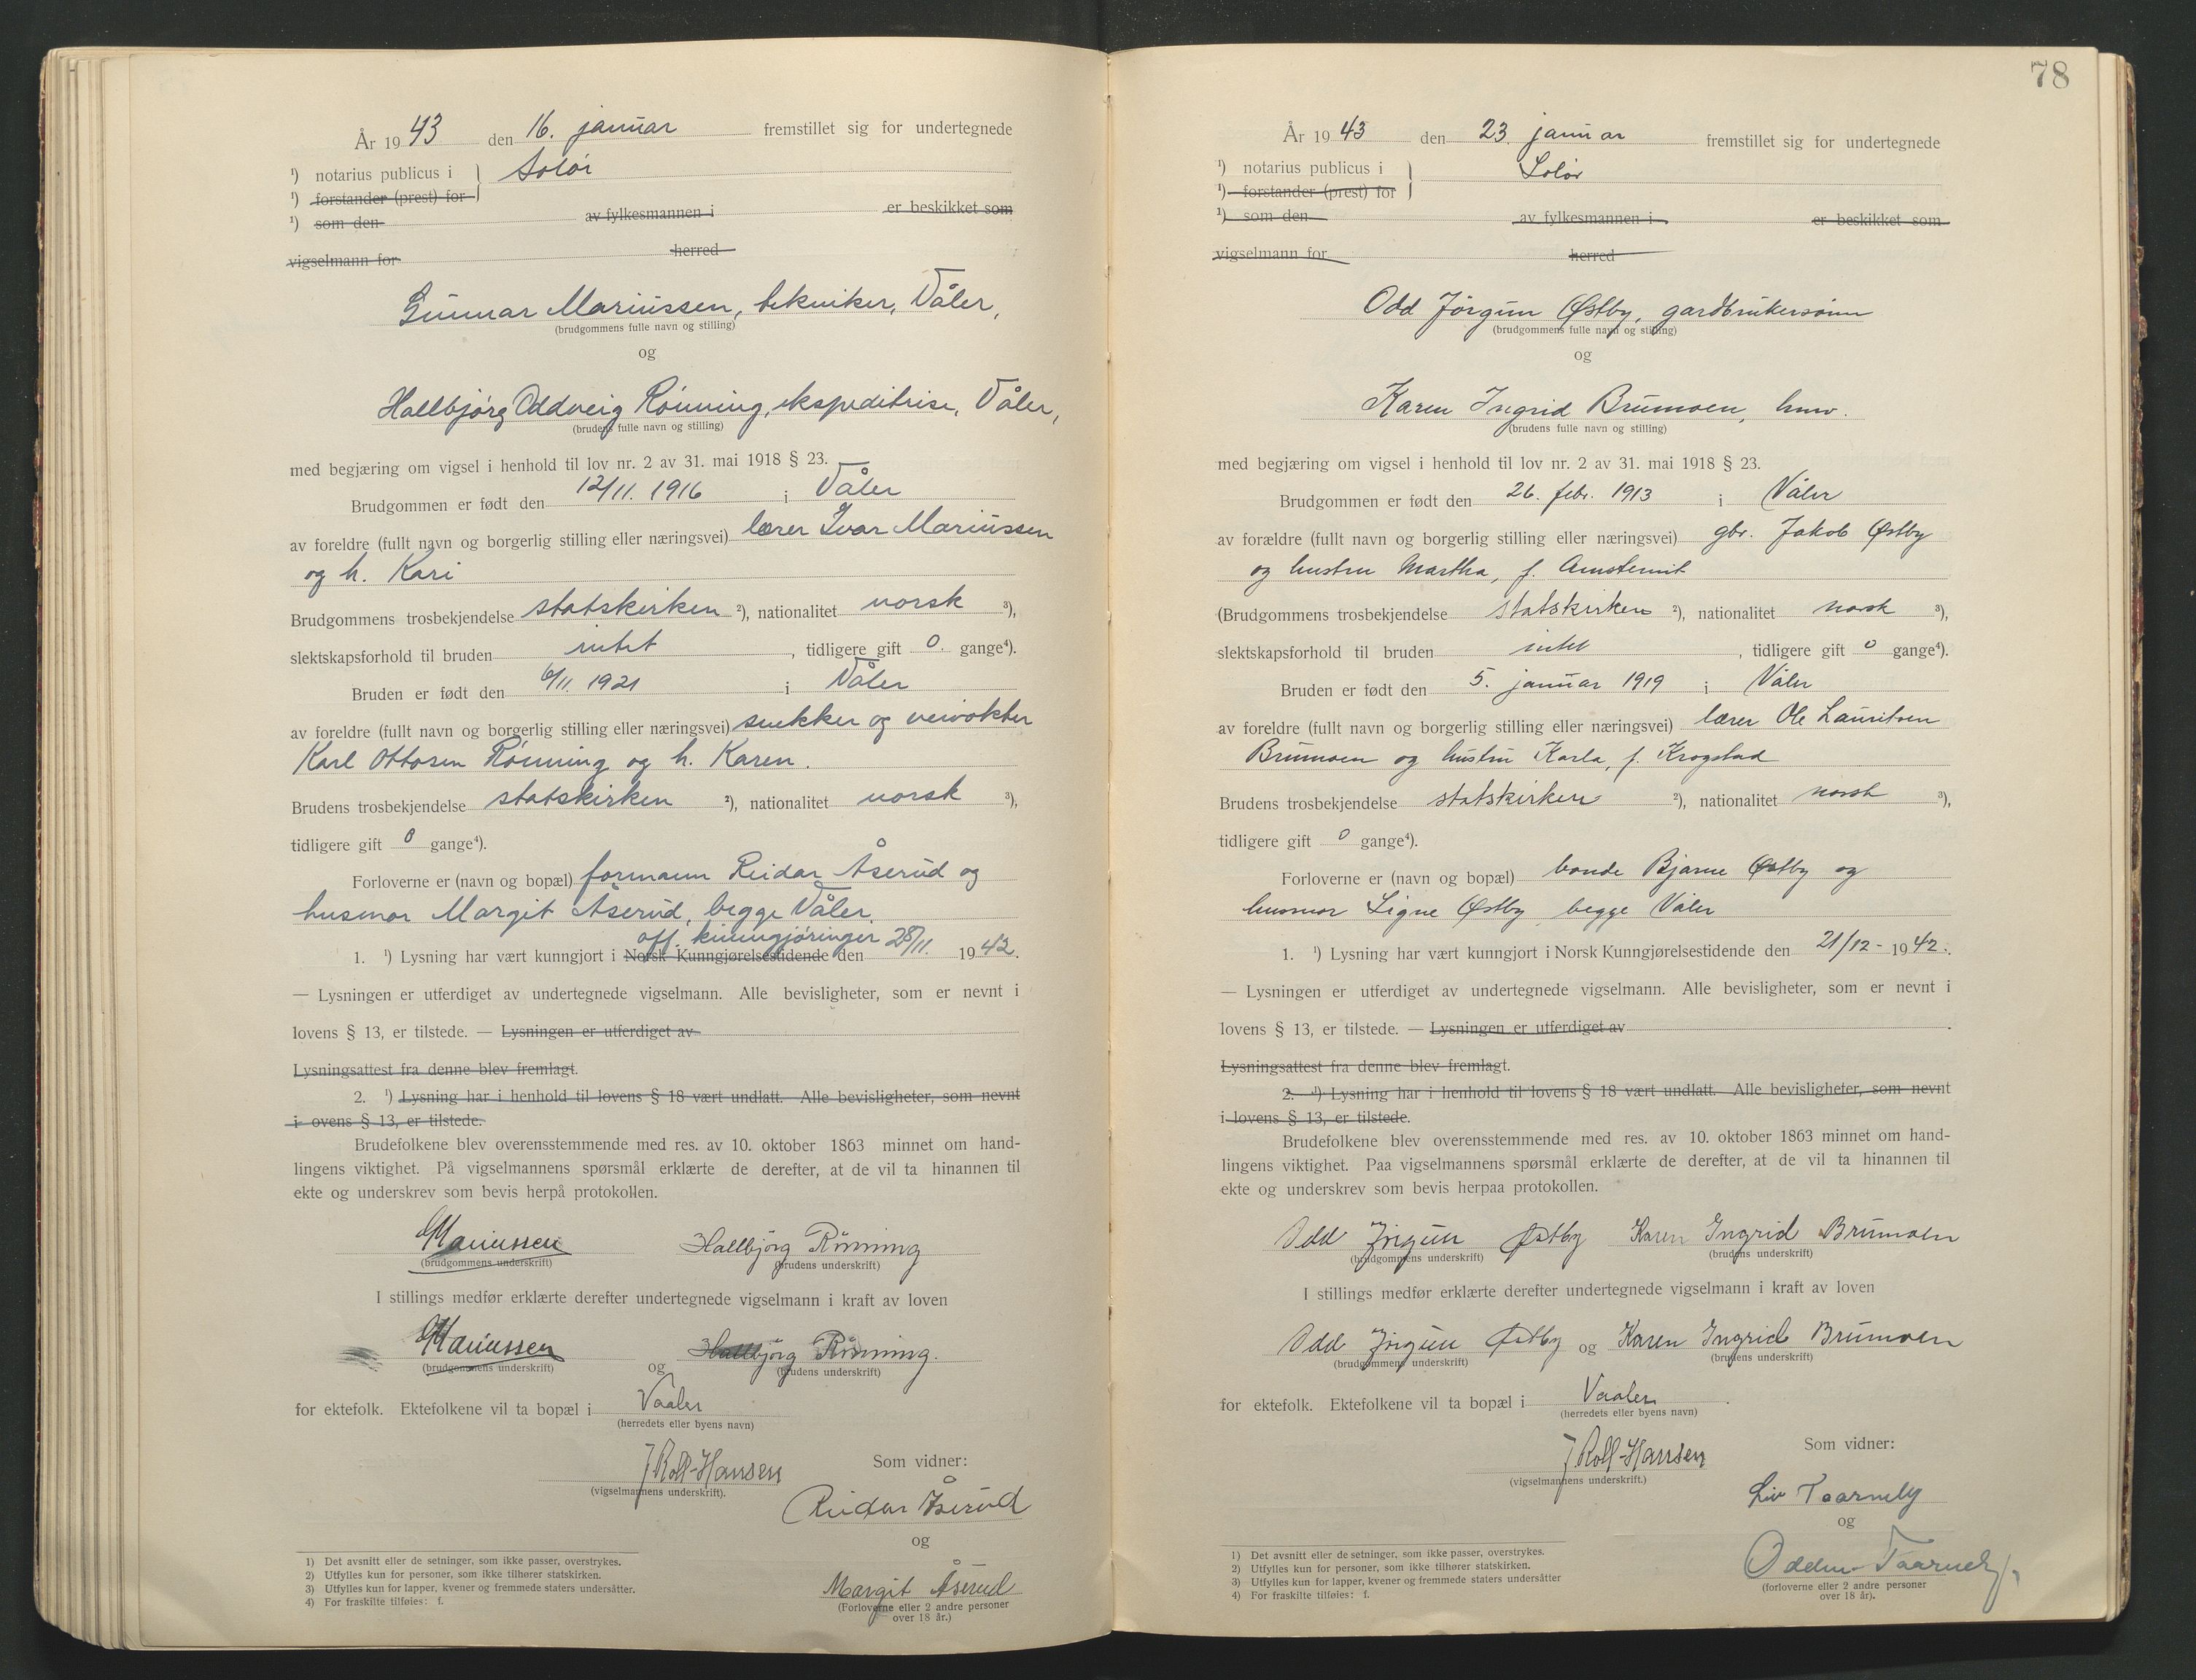 År 1943 den 16. januar fremstillet sig for undertegnede
¹) notarius publicus i Solør
¹) forstander (prest) for
¹) som den av fylkesmannen i er beskikket som
vigselmann for herred
Gunnar Mariussen, tekniker, Våler,
(brudgommens fulle navn og stilling)
og
Hallbjørg Oddveig Rønning, ekspeditrise, Våler,
(brudens fulle navn og stilling)
med begjæring om vigsel i henhold til lov nr. 2 av 31. mai 1918 § 23.
Brudgommen er født den 12/11. 1916 i Våler
av foreldre (fullt navn og borgerlig stilling eller næringsvei) lærer Ivar Mariussen
og h. Kari
Brudgommens trosbekjendelse statskirken ²), nationalitet norsk ³),
slektskapsforhold til bruden intet, tidligere gift 0. gange⁴).
Bruden er født den 6/11. 1921 i Våler
av foreldre (fullt navn og borgerlig stilling eller næringsvei) snekker og veivokter
Karl Ottosen Rønning og h. Karen.
Brudens trosbekjendelse statskirken ²), nationalitet norsk ³),
tidligere gift 0 gange⁴).
Forloverne er (navn og bopæl) formann Reidar Åserud og
husmor Margit Åserud, begge Våler.
off. kunngjøringer
1. ¹) Lysning har vært kunngjort i Norsk Kunngjørelsestidende den 28/11. 1942.
— Lysningen er utferdiget av undertegnede vigselmann. Alle bevisligheter, som er nevnt i
lovens § 13, er tilstede. — Lysningen er utferdiget av
Lysningsattest fra denne blev fremlagt.
2. ¹) Lysning har i henhold til lovens § 18 vært undlatt. Alle bevisligheter, som nevnt
i ovens § 13, er tilstede.
Brudefolkene blev overensstemmende med res. av 10. oktober 1863 minnet om hand-
lingens viktighet. På vigselmannens spørsmål erklærte de derefter, at de vil ta hinannen til
ekte og underskrev som bevis herpå protokollen.
GMariussen Hallbjørg Rönning
(brudgommens underskrift) (brudens underskrift)
I stillings medfør erklærte derefter undertegnede vigselmann i kraft av loven
GMariussen og Hallbjørg Rönning.
(brudgommens underskrift) (brudens underskrift)
for ektefolk. Ektefolkene vil ta bopæl i Vaaler
(herredets eller byens navn)
J Roll-Hansen
(vigselmannens underskrift).
Som vidner:
Reidar Åserud
og
Margit Åserud
(Forloverne eller 2 andre personer
over 18 år.)
1) Det avsnitt eller de setninger, som ikke passer, overstrykes.
2) Utfylles kun for personer, som ikke tilhører statskirken.
3) Utfylles kun for lapper, kvener og fremmede staters undersåtter.
4) For fraskilte tilføies: f.
78
År 1943 den 23. januar fremstillet sig for undertegnede
¹) notarius publicus i Solør
¹) forstander (prest) for
¹) som den av fylkesmannen i er beskikket som
vigselmann for herred
Odd Jørgun Østby, gardbrukersønn
(brudgommens fulle navn og stilling)
og
Karen Ingrid Brumoen, husv.
(brudens fulle navn og stilling)
med begjæring om vigsel i henhold til lov nr. 2 av 31. mai 1918 § 23.
Brudgommen er født den 26. febr. 1913 i Våler
av forældre (fullt navn og borgerlig stilling eller næringsvei) gbr. Jakob Østby
og hustru Martha, f.
(Brudgommens trosbekjendelse statskirken ²), nationalitet norsk ³),
slektskapsforhold til bruden intet, tidligere gift 0 gange⁴).
Bruden er født den 5. januar 1919 i Våler
av foreldre (fullt navn og borgerlig stilling eller næringsvei) lærer Ole Lauritsen
Brumoen og hustru Karla, f. Krogstad
Brudens trosbekjendelse statskirken ²), nationalitet norsk ³),
tidligere gift 0 gange⁴).
Forloverne er (navn og bopæl) bonde Bjarne Østby og
husmor Signe Østby begge Våler
1. ¹) Lysning har vært kunngjort i Norsk Kunngjørelsestidende den 21/12 - 1942.
— Lysningen er utferdiget av undertegnede vigselmann. Alle bevisligheter, som er nevnt i
lovens § 13, er tilstede. — Lysningen er utferdiget av .
Lysningsattest fra denne blev fremlagt.
2. ¹) Lysning har i henhold til lovens § 18 vært undlatt. Alle bevisligheter, som nevnt
i lovens § 13, er tilstede.
Brudefolkene blev overensstemmende med res. av 10. oktober 1863 minnet om hand-
lingens viktighet. Paa vigselmannens spørsmål erklærte de derefter, at de vil ta hinannen til
ekte og underskrev som bevis herpaa protokollen.
Odd Jörgun Østby Karen Ingrid Brumoen
(brudgommens underskrift) (brudens underskrift)
I stillings medfør erklærte derefter undertegnede vigselmann i kraft av loven
Odd Jörgun Østby og Karen Ingrid Brumoen
(brudgommens underskrift) (brudens underskrift)
for ektefolk. Ektefolkene vil ta bopæl i Vaaler .
(herredets eller byens navn)
J Roll-Hansen
(vigselmannens underskrift.)
Som vidner:
Liv Taarneby
og
Taarneby
(forloverne eller 2 andre personer
over 18 år).
1) Det avsnitt eller de setninger, som ikke passer, overstrykes.
2) Utfylles kun for personer, som ikke tilhører statskirken.
3) Utfylles kun for lapper, kvener og fremmede staters undersåtter
4) For fraskilte tilføies: f.